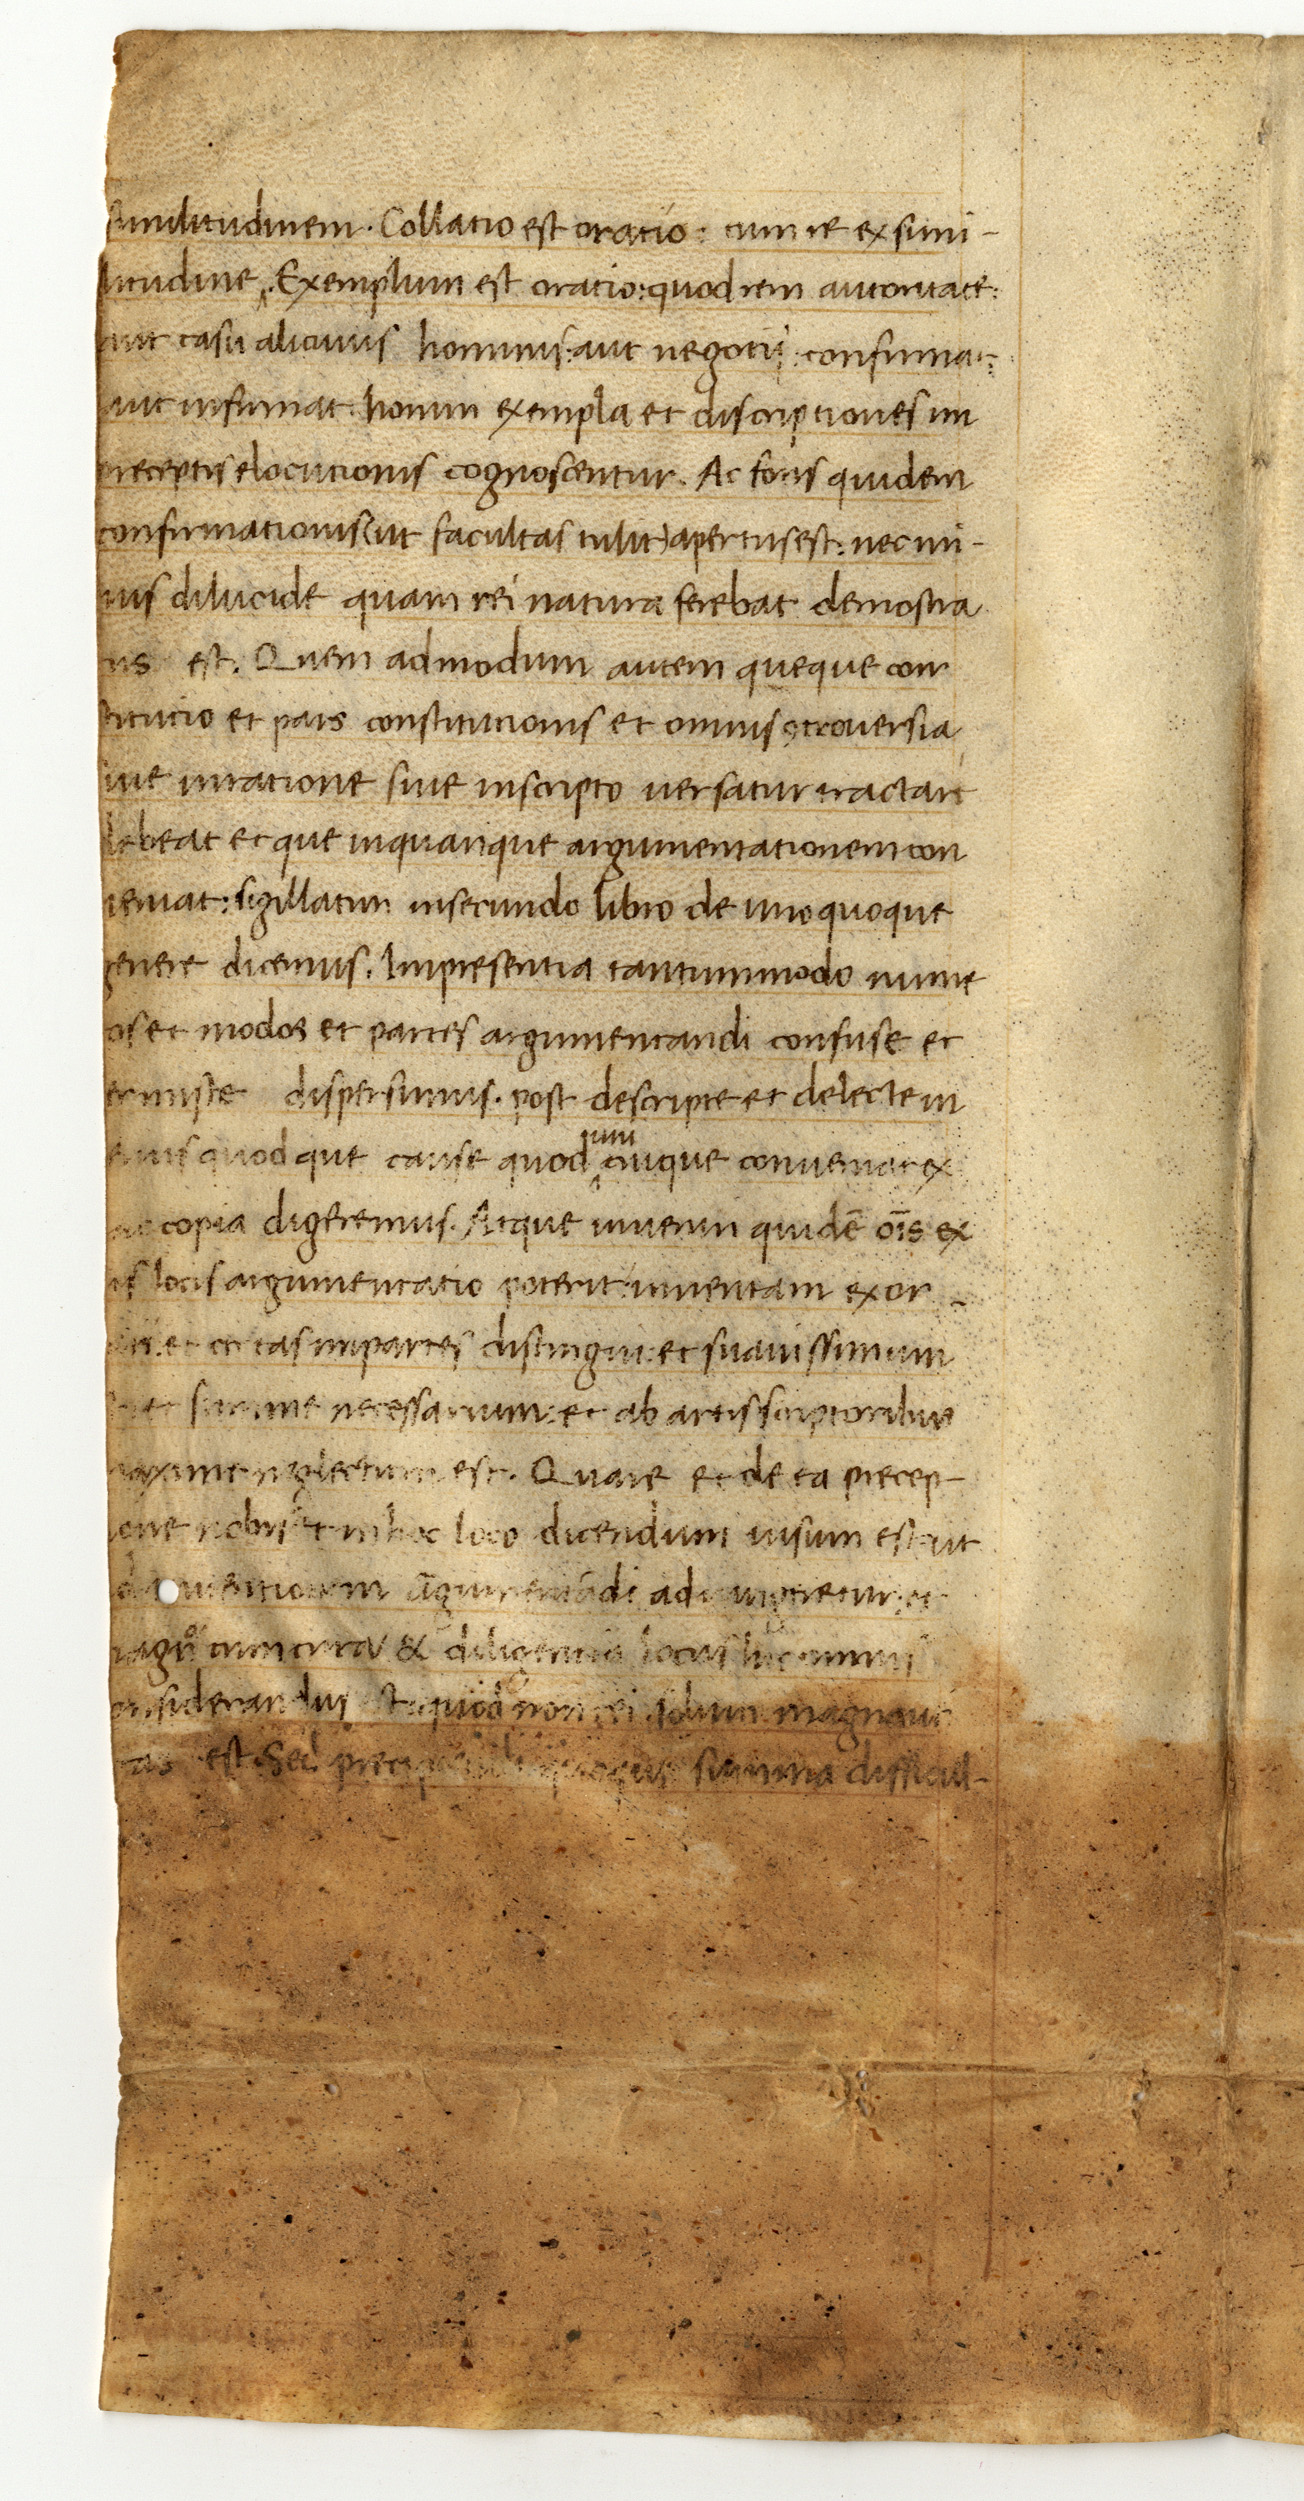 similitudinem. Collatio est oratio: cum re ex simi-
litudine. Exemplum est oratio: quod rem autoritate:
aut casu alicuius hominis: aut negotij: confirmat:
aut infirmat: horum exempla et discriptiones im
preceptis elocutionis cognoscentur. Ac fons quidem
confirmationis (ut facultas tulit) apertus est: nec mi-
nus dilucide quam rei natura ferebat demostra
tus est. Quem admodum autem queque con
stitutio et pars constitutionis et omnis ɔtrouersia
siue inratione siue inscripto uersatur tractari
debeat et que inquanque argumentationem con
ueniat: sigillatim insecundo libro de uno quoque
genere dicemus. Impresentia tantummodo nume
ros et modos et partes argumentandi confuse et
permiste dispersimus. post descripte et delecte in
genus quod que cause quod cuique conueniat ex
iun
hac copia digeremus. Atque inueniri quidē oīs ex
his locis argumentatio poterit: inuentam exor
nari: et certas impartes distingui: et suauissimum
est et summe necessarium: et ab artis scriptoribus
maxime neglectum est. Quare et de ea precep-
tione nobis et in hoc loco dicendum uisum est ut
ad inuentionem argumentādi adiungeretur: et
magnº cum cura & diligentia locus hic omnis
considerandus quod non rei solum magna uti
tas est. Sed precipiendi quoque summa difficul-